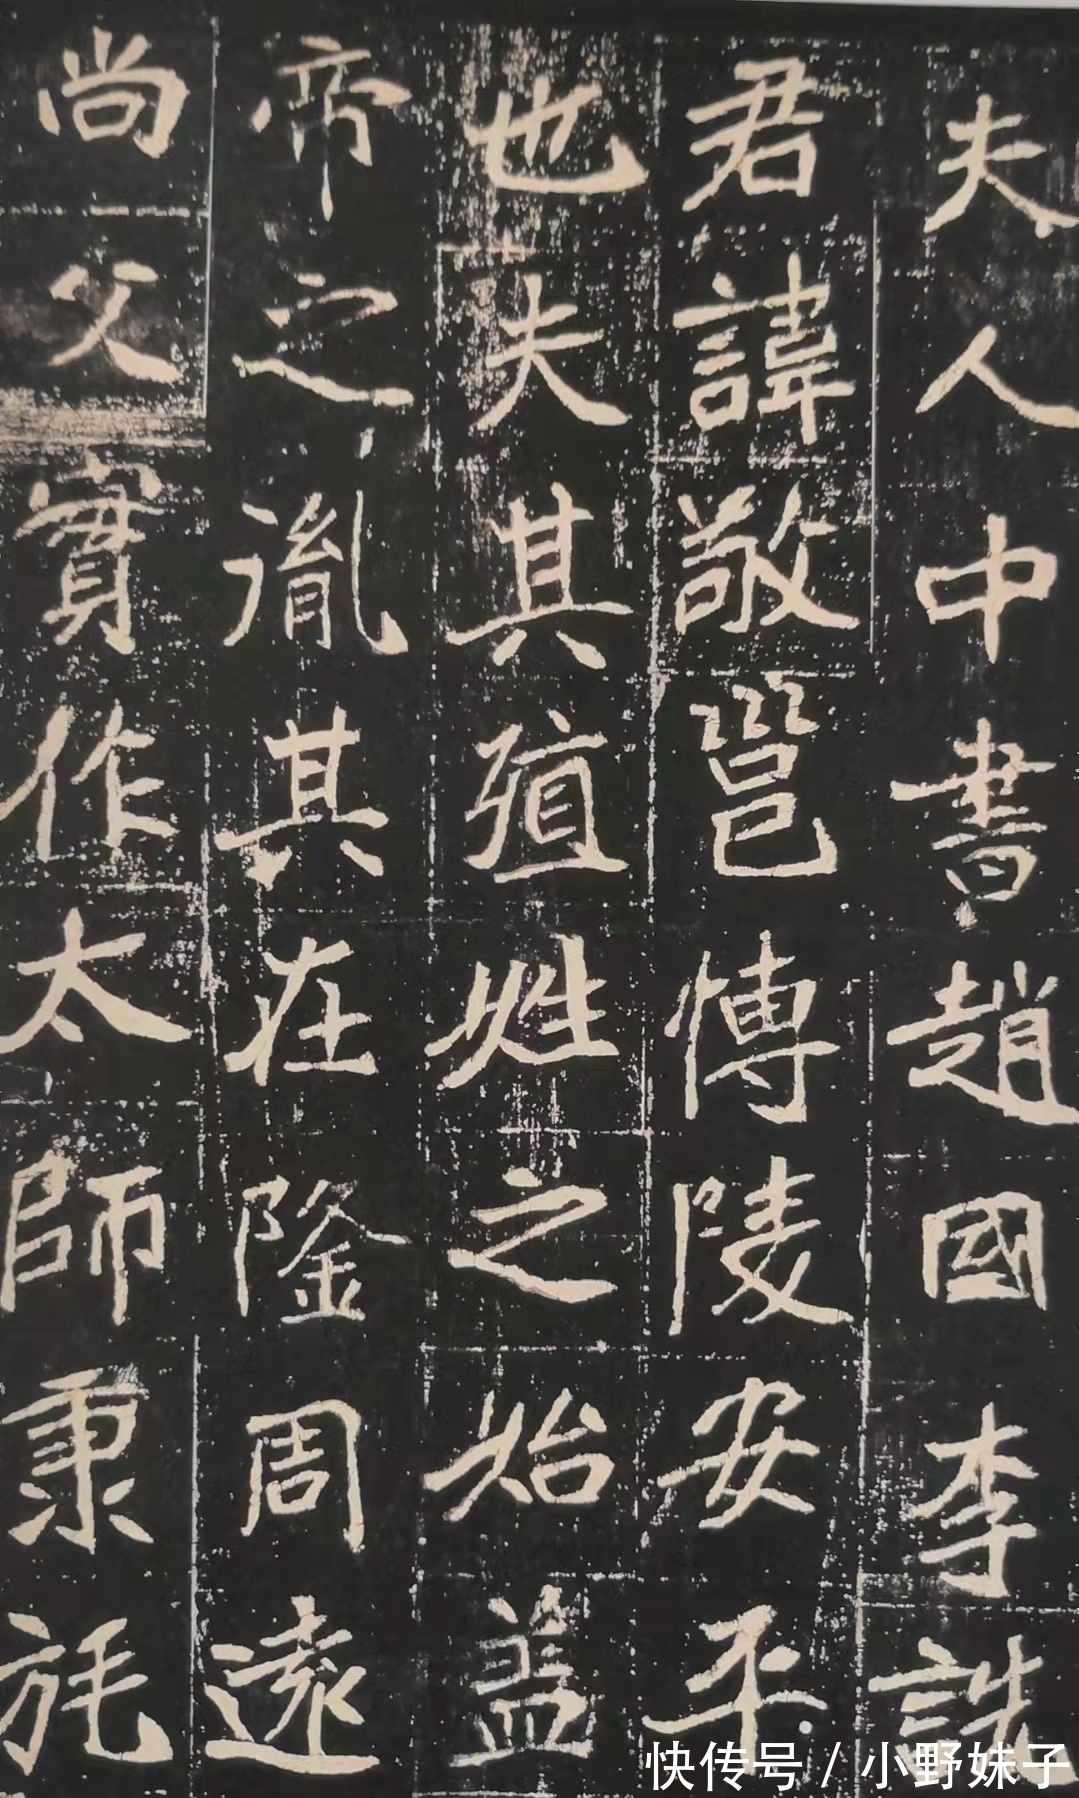 夫人中書趙國李詵
君諱敬邕博陵安平
也夫其殖姓之始蓋
帝之胤其在隆周遠
尚父實作太師秉旄
快传号/小野妹子